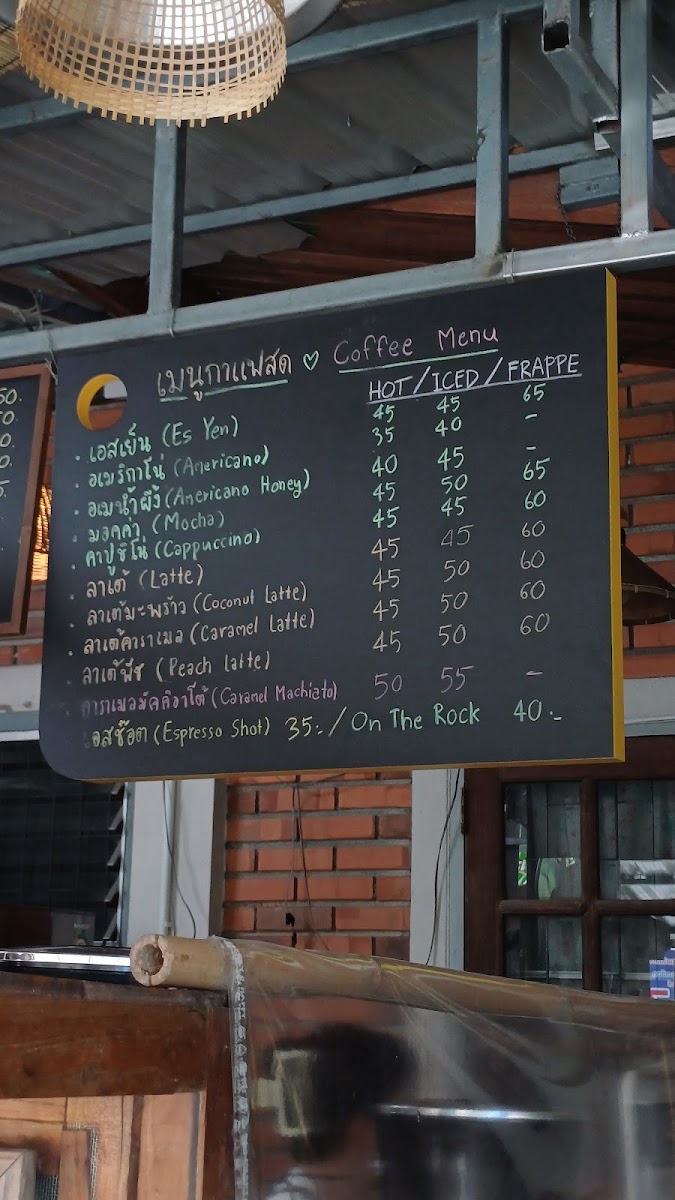 เมนูกาแฟสด ♡ Coffee Menu
HOT / ICED / FRAPPE
• เอสเย็น (Es Yen) 45 45 65
• อเมริกาโน่ (Americano) 35 40 -
• อเมน้ำผึ้ง (Americano Honey) 40 45 -
• มอคค่า (Mocha) 45 50 65
• คาปูชิโน่ (Cappuccino) 45 45 60
• ลาเต้ (Latte) 45 45 60
• ลาเต้มะพร้าว (Coconut Latte) 45 50 60
• ลาเต้คาราเมล (Caramel Latte) 45 50 60
• ลาเต้พีช (Peach Latte) 45 50 60
• คาราเมลมัคคิอาโต้ (Caramel Machiato) 50 55 -
เอสช๊อต (Espresso Shot) 35.- / On The Rock 40.-